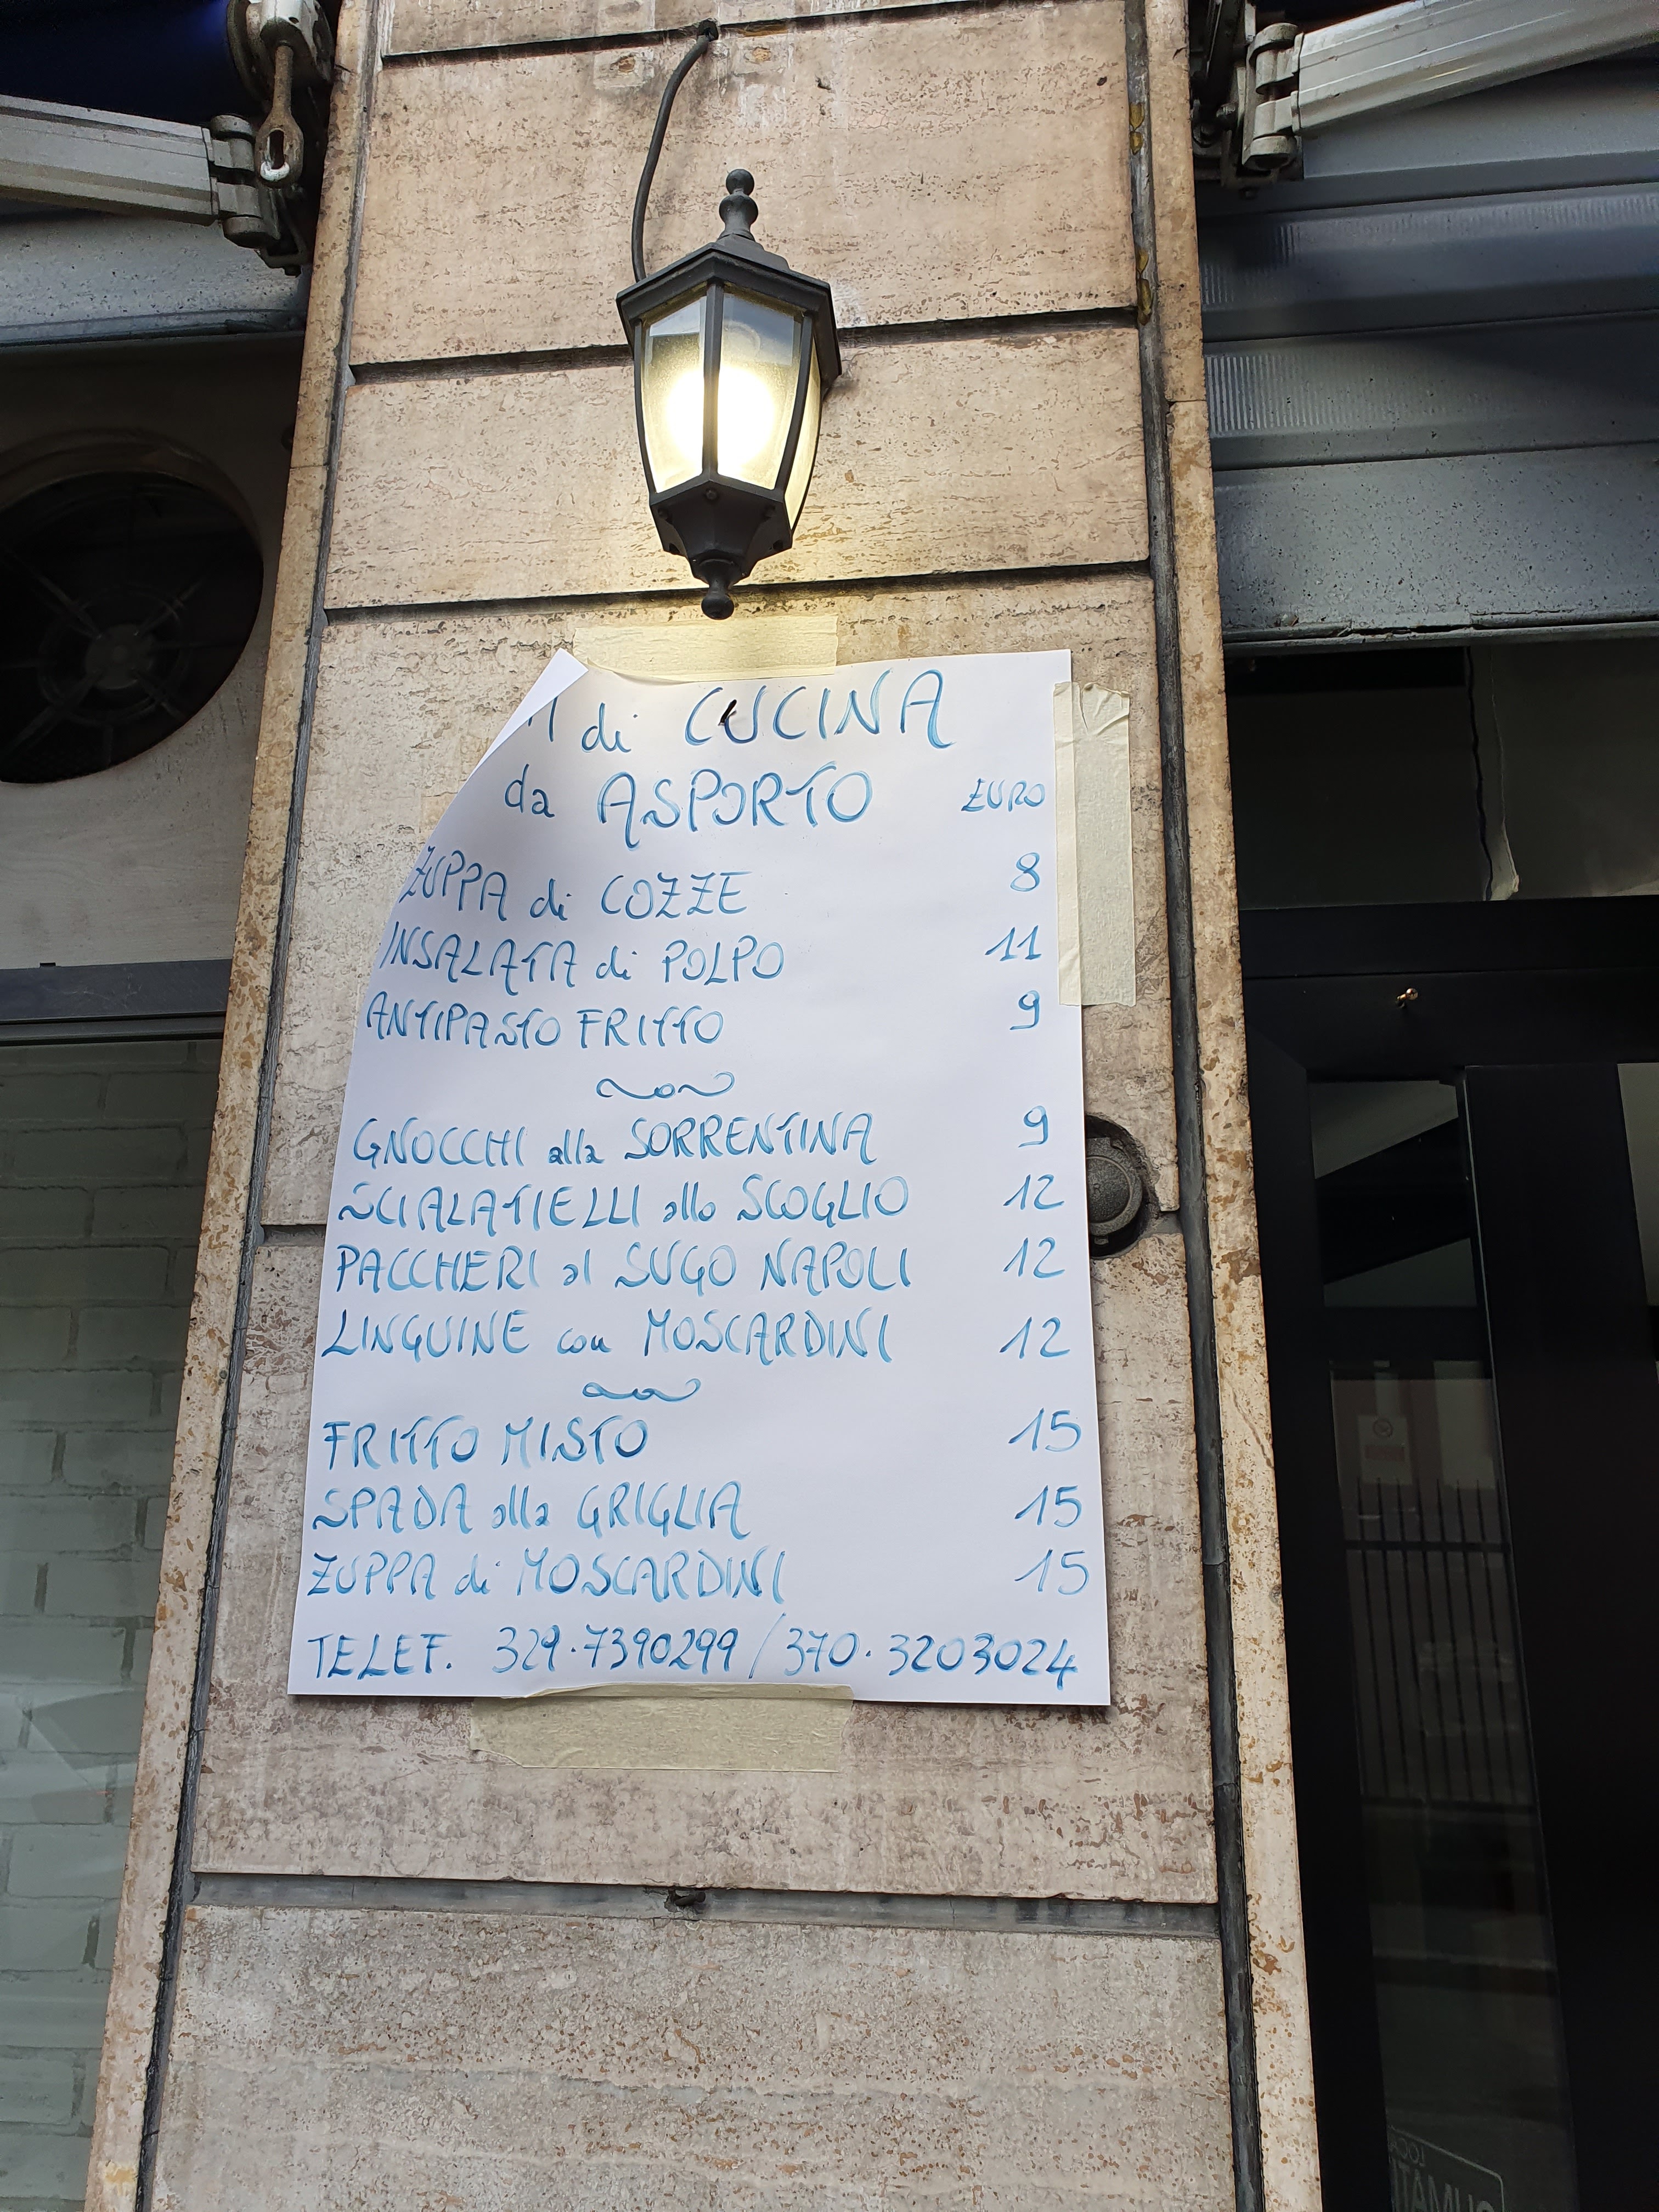 di CUCINA
da ASPORTO EURO
ZUPPA di COZZE 8
INSALATA di POLPO 11
ANTIPASTO FRITTO 9
GNOCCHI alla SORRENTINA 9
SCIALATIELLI allo SCOGLIO 12
PACCHERI al SUGO NAPOLI 12
LINGUINE con MOSCARDINI 12
FRITTO MISTO 15
SPADA alla GRIGLIA 15
ZUPPA di MOSCARDINI 15
TELEF. 329.7390299 / 370.3203024